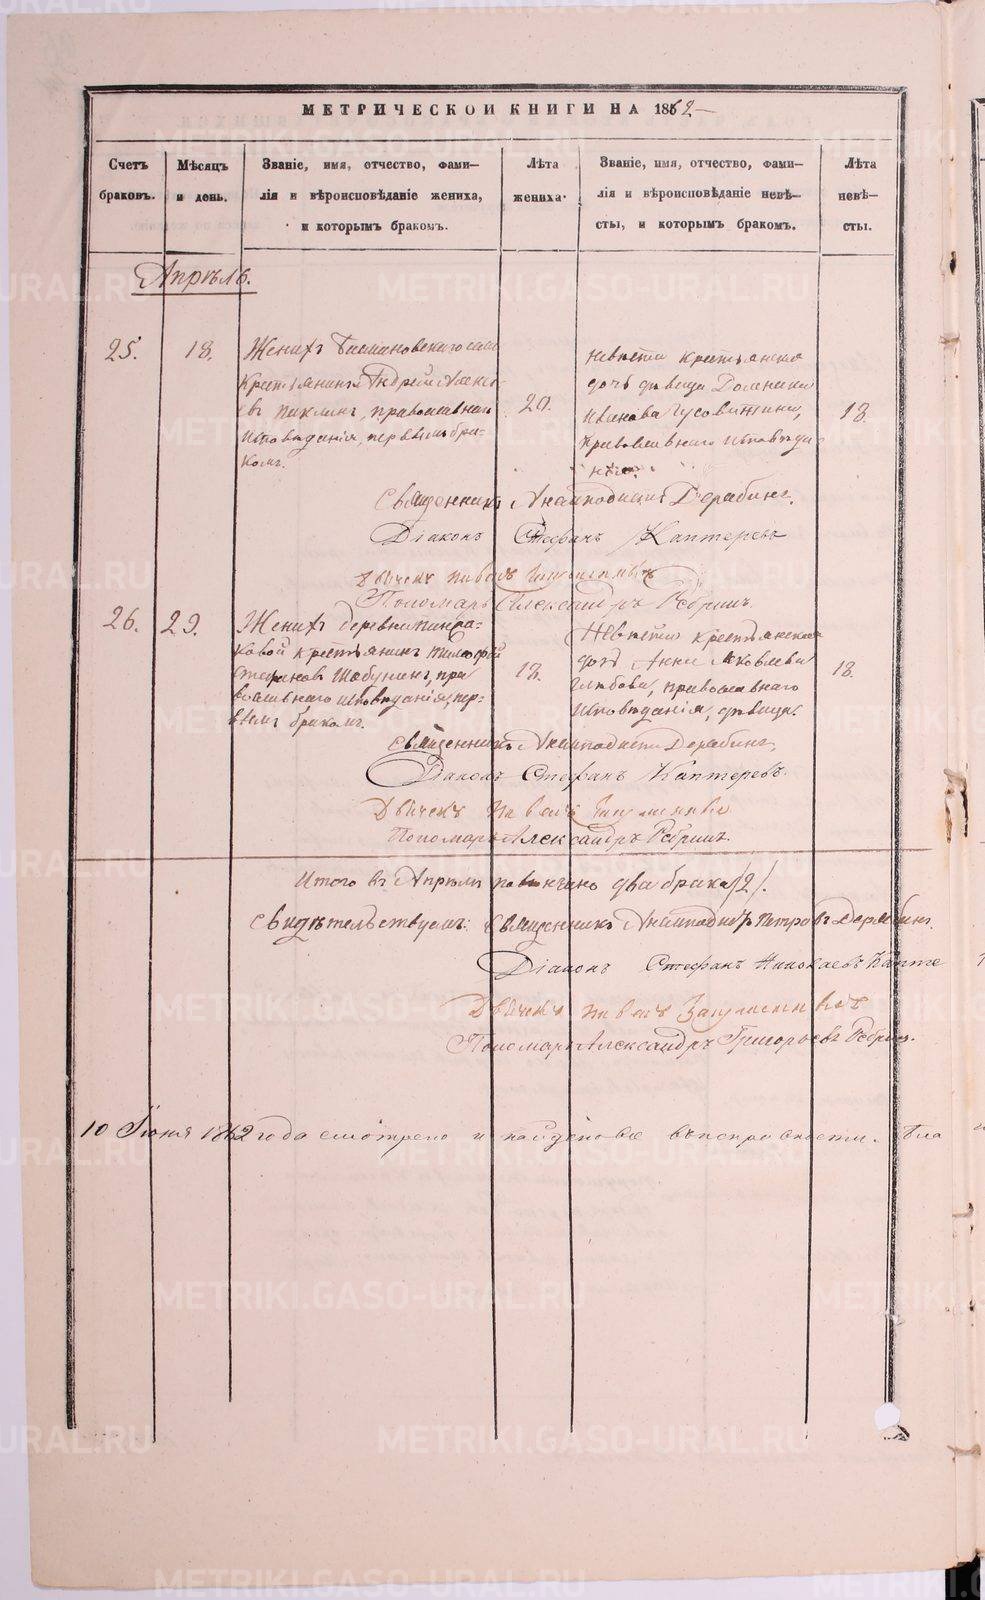 МЕТРИЧЕСКОЙ КНИГИ НА 1862
Счетъ браковъ.
Мѣсяцъ и день.
Званіе, имя, отчество, фами-
лія и вѣроисповѣданіе жениха,
и которымъ бракомъ.
Лѣта жениха.
Званіе, имя, отчество, фами-
лія и вѣроисповѣданіе невѣ-
сты, и которымъ бракомъ.
Лѣта невѣ-
сты.
Апрѣль.
25.
18.
Женихъ села
Крестьянинъ Андрей Алексѣ-
евъ Пиклинъ, православнаго
исповѣданія, первымъ бра-
комъ.
20.
Невѣста крестьянская
дочь дѣвица
Иванова Гусовитина,
православнаго исповѣда-
нія.
18.
Священникъ Анемподистъ Дерябинъ.
Діаконъ Стефанъ Каптеревъ
Дьячекъ Павелъ
Пономарь Александръ Ребринъ.
26.
29.
Женихъ деревни
ковой крестьянинъ Тимофей
Стефановъ Шабунинъ, пра-
вославнаго исповѣданія, пер-
вымъ бракомъ.
18.
Невѣста крестьянская
дочь Анна Яковлева
Глѣбова, православнаго
исповѣданія, дѣвица.
18.
Священникъ Анемподистъ Дерябинъ,
Діаконъ Стефанъ Каптеревъ.
Дьячекъ Павелъ
Пономарь Александръ Ребринъ.
Итого въ Апрѣлѣ повѣнчано два брака /2/.
Свидѣтельствуемъ: Священникъ Анемподистъ Петровъ Дерябинъ.
Діаконъ Стефанъ Николаевъ Капте
Дьячекъ Павелъ
Пономарь Александръ Григорьевъ Ребринъ.
10 Іюня 1862 года смотрено и найдено все въ исправности. Бла
METRIKI.GASO-URAL.RU